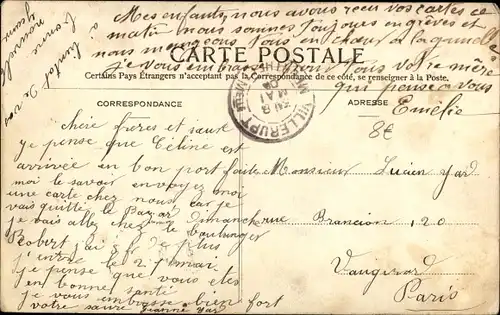 Mes enfants, nous avons reçu vos cartes ce
matin nous sommes toujours en grèves et
nous mangeons tous en chœur à la gamelle
je vous embrasse tous votre mère
qui pense à vous
Emélie
à bientôt de vos
nouvelles
CARTE POSTALE
Certains Pays Étrangers n'acceptent pas la Correspondance de ce côté, se renseigner à la Poste.
CORRESPONDANCE
ADRESSE
VILLERUPT
MAI
8€
chère frères et saure
je pense que Céline est
arrivée en bon port faite
moi le savoir envoyez moi
une carte chez nous car je
vais quitté le Bazar dimanche
je vais allez chez le boulanger
Robert j'ai 5 f. de plus
j'entre le 21 mai
je pense que vous etes
en bonne santé
je vous embrasse bien fort
votre saure Jeanne Yar
Monsieur Lucien Yard
rue Brancion 120
Vaugirard
Paris